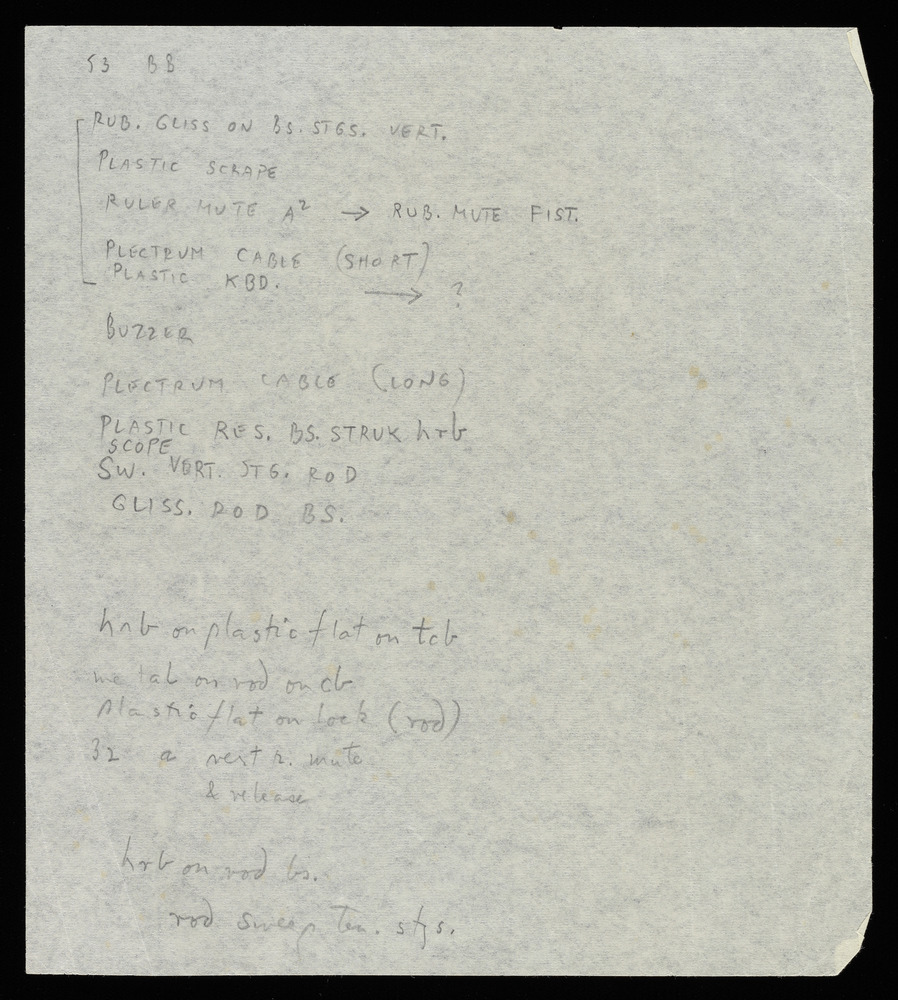 53 BB
RUB. GLISS ON BS. STGS. VERT.
PLASTIC SCRAPE
RULER MUTE A2 → RUB. MUTE FIST.
PLECTRUM CABLE (SHORT)
PLASTIC KBD. → ?
BUZZER
PLECTRUM CABLE (LONG)
PLASTIC RES. BS. STRUK hrb
SCOPE
SW. VERT. STG. ROD
GLISS. ROD BS.
hrb on plastic flat on tcb
metal on rod on cb
Plastic flat on lock (rod)
32 a vert r. mute
& release
hrb on rod bs.
rod sweep Ten. stgs.